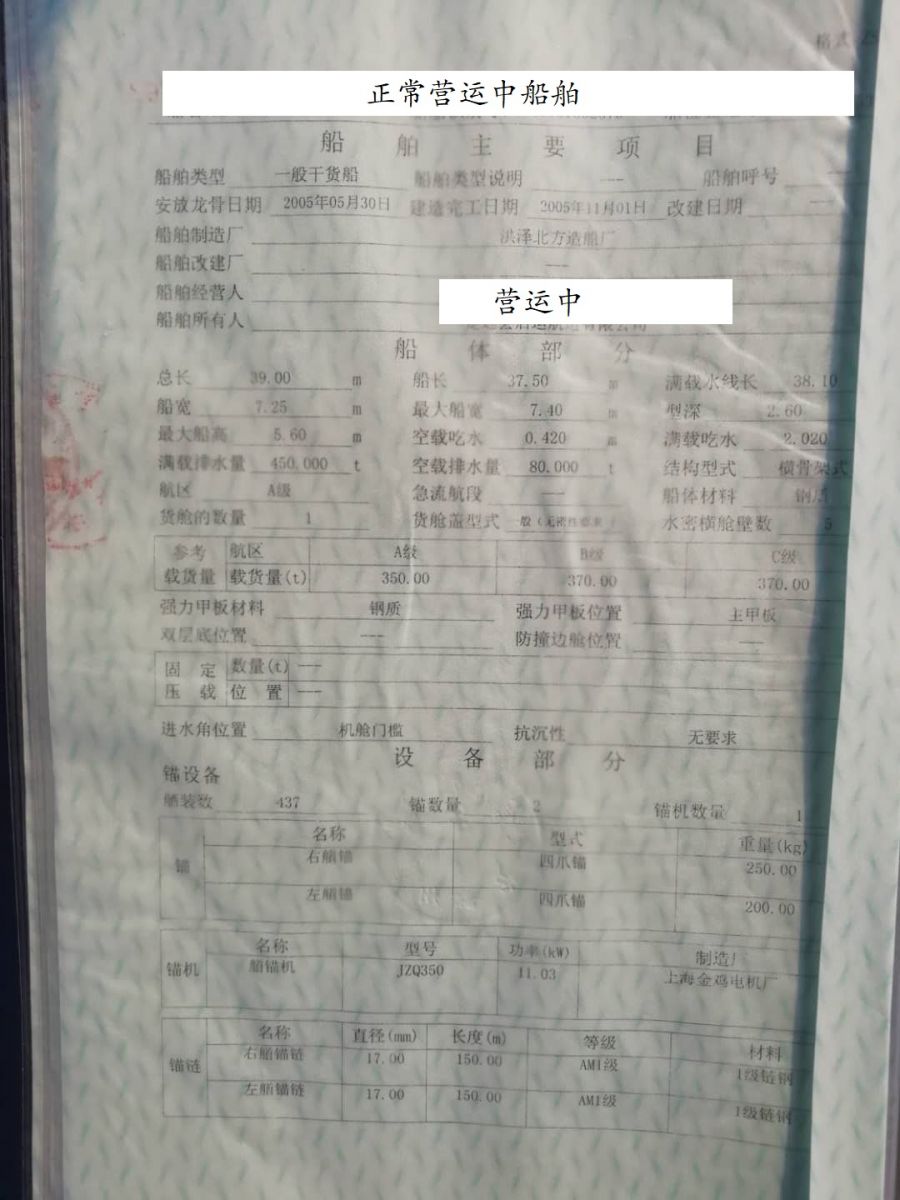 格式
正常营运中船舶
船舶主要项目
船舶类型 一般干货船 船舶类型说明 --- 船舶呼号
安放龙骨日期 2005年05月30日 建造完工日期 2005年11月01日 改建日期 ---
船舶制造厂 洪泽北方造船厂
船舶改建厂 ---
船舶经营人 营运中
船舶所有人
船体部分
总长 39.00 m 船长 37.50 m 满载水线长 38.10
船宽 7.25 m 最大船宽 7.40 m 型深 2.60
最大船高 5.60 m 空载吃水 0.420 m 满载吃水 2.020
满载排水量 450.000 t 空载排水量 80.000 t 结构型式 横骨架式
航区 A级 急流航段 --- 船体材料 钢质
货舱的数量 1 货舱盖型式 水密横舱壁数 5
参考 航区 A级 B级 C级
载货量 载货量(t) 350.00 370.00 370.00
强力甲板材料 钢质 强力甲板位置 主甲板
双层底位置 --- 防撞边舱位置 ---
固定 数量(t) ---
压载 位置 ---
进水角位置 机舱门槛 抗沉性 无要求
设备部分
锚设备
舾装数 437 锚数量 2 锚机数量 1
锚 名称 型式 重量(kg)
右艏锚 四爪锚 250.00
左艏锚 四爪锚 200.00
锚机 名称 型号 功率(kW) 制造厂
艏锚机 JZQ350 11.03 上海金鸡电机厂
锚链 名称 直径(mm) 长度(m) 等级 材料
右艏锚链 17.00 150.00 AM1级 1级链钢
左艏锚链 17.00 150.00 AM1级 1级链钢